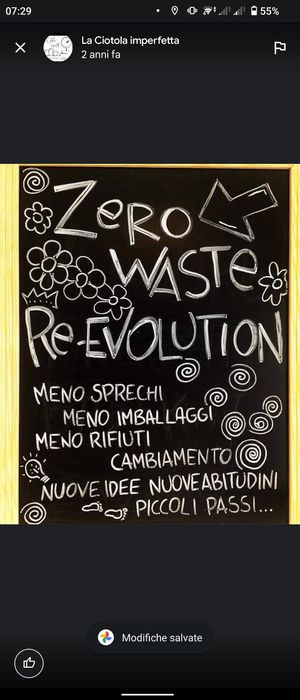 07:29
55%
La Ciotola imperfetta
2 anni fa
ZERO
WASTE
RE-EVOLUTION
MENO SPRECHI
MENO IMBALLAGGI
MENO RIFIUTI
CAMBIAMENTO
NUOVE IDEE NUOVE ABITUDINI
PICCOLI PASSI...
Modifiche salvate